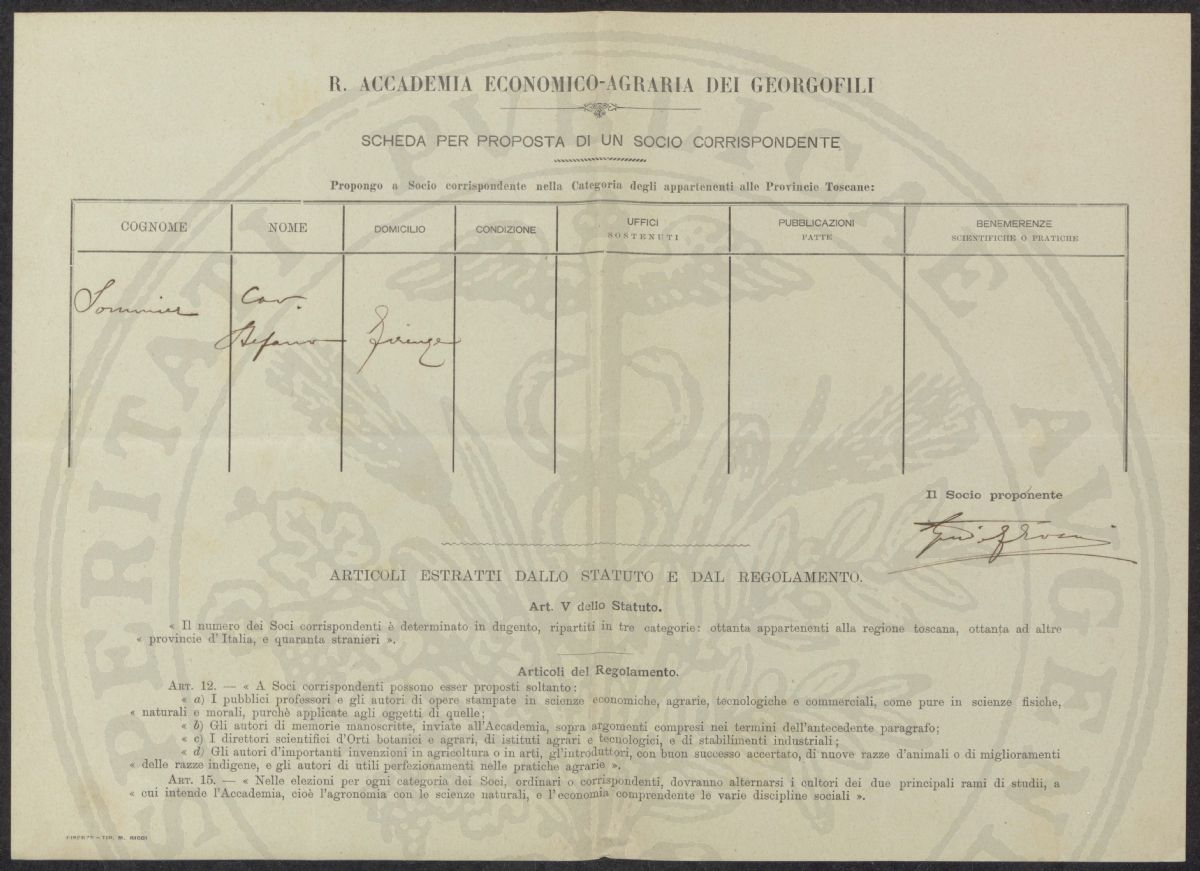 R. ACCADEMIA ECONOMICO-AGRARIA DEI GEORGOFILI
SCHEDA PER PROPOSTA DI UN SOCIO CORRISPONDENTE
Propongo a Socio corrispondente nella Categoria degli appartenenti alle Provincie Toscane:
COGNOME NOME DOMICILIO CONDIZIONE UFFICI SOSTENUTI PUBBLICAZIONI FATTE BENEMERENZE SCIENTIFICHE O PRATICHE
Sommier Cav. Stefano Firenze
Il Socio proponente
ARTICOLI ESTRATTI DALLO STATUTO E DAL REGOLAMENTO.
Art. V dello Statuto.
« Il numero dei Soci corrispondenti è determinato in dugento, ripartiti in tre categorie: ottanta appartenenti alla regione toscana, ottanta ad altre
« provincie d'Italia, e quaranta stranieri ».
Articoli del Regolamento.
ART. 12. — « A Soci corrispondenti possono esser proposti soltanto:
« a) I pubblici professori e gli autori di opere stampate in scienze economiche, agrarie, tecnologiche e commerciali, come pure in scienze fisiche,
« naturali e morali, purchè applicate agli oggetti di quelle;
« b) Gli autori di memorie manoscritte, inviate all'Accademia, sopra argomenti compresi nei termini dell'antecedente paragrafo;
« c) I direttori scientifici d'Orti botanici e agrari, di istituti agrari e tecnologici, e di stabilimenti industriali;
« d) Gli autori d'importanti invenzioni in agricoltura o in arti, gl'introduttori, con buon successo accertato, di nuove razze d'animali o di miglioramenti
« delle razze indigene, e gli autori di utili perfezionamenti nelle pratiche agrarie ».
ART. 15. — « Nelle elezioni per ogni categoria dei Soci, ordinari o corrispondenti, dovranno alternarsi i cultori dei due principali rami di studii, a
« cui intende l'Accademia, cioè l'agronomia con le scienze naturali, e l'economia comprendente le varie discipline sociali ».
FIRENZE - TIP. M. RICCI
PROSPERITATI PVBLICAE AVGENDAE